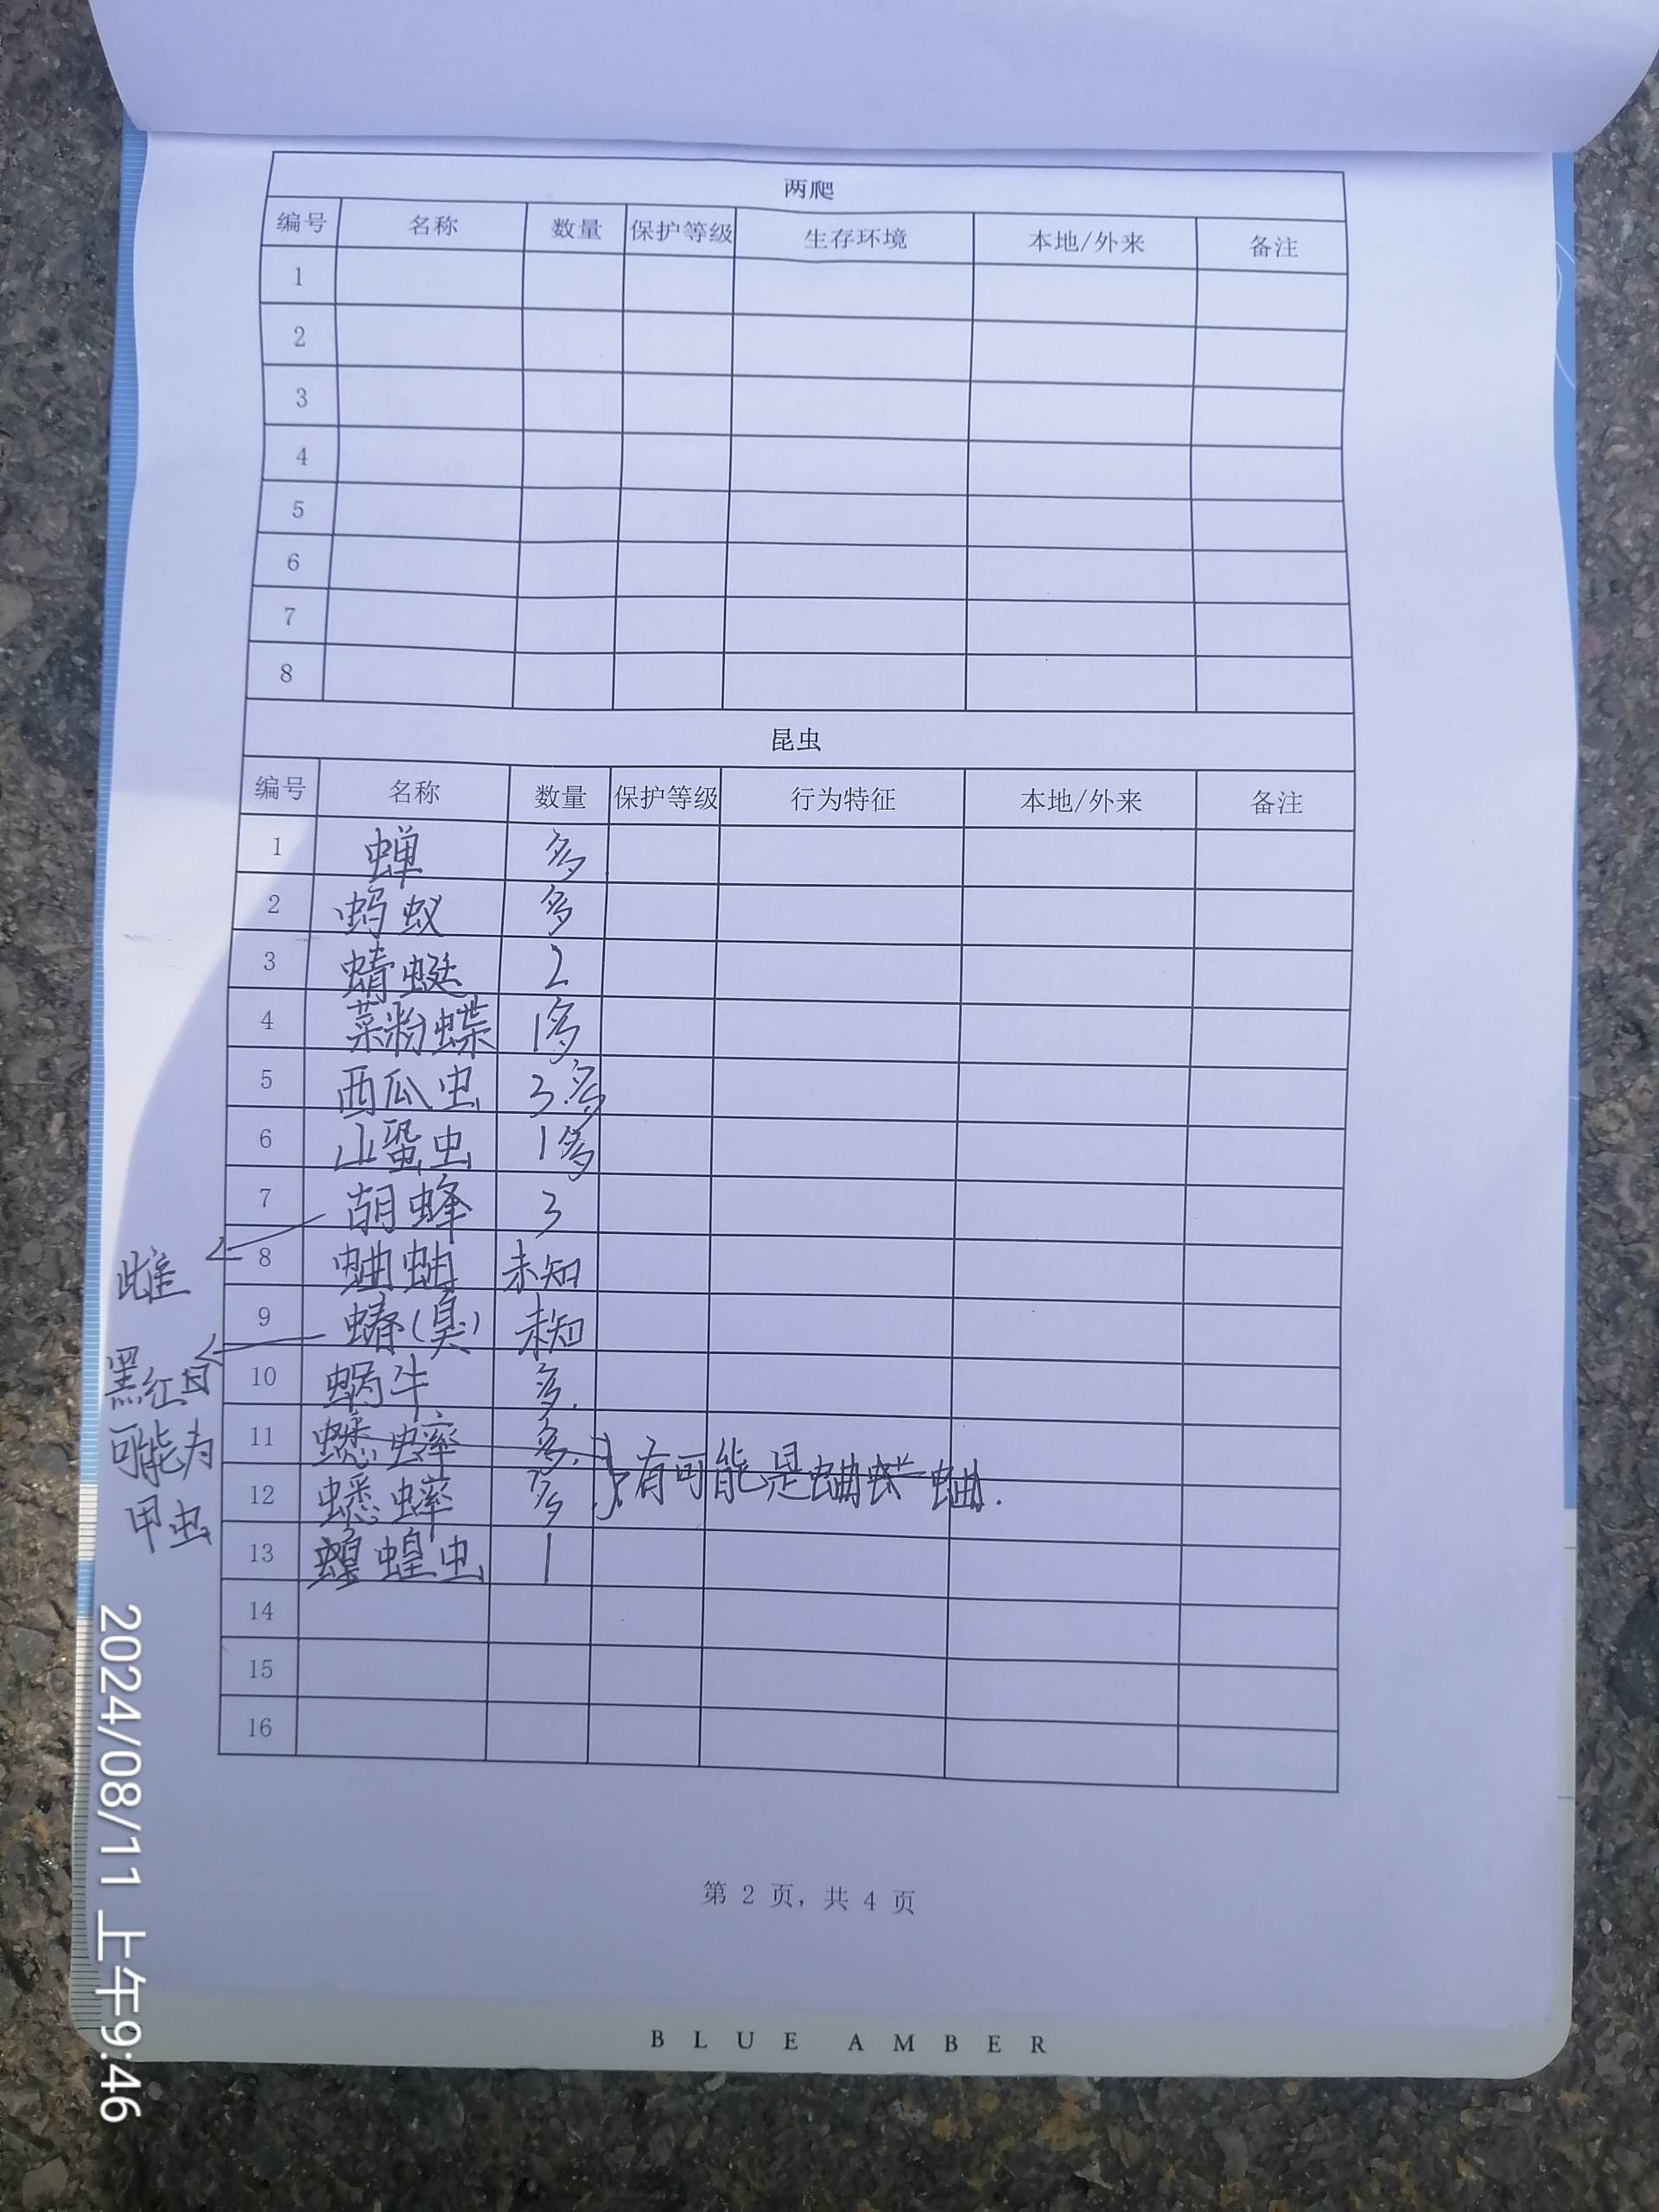 两爬
编号 名称 数量 保护等级 生存环境 本地/外来 备注
1
2
3
4
5
6
7
8
昆虫
编号 名称 数量 保护等级 行为特征 本地/外来 备注
1 蝉 多
2 蚂蚁 多
3 蜻蜓 2
4 菜粉蝶 1多
5 西瓜虫 3.多
6 山蛩虫 1多
7 胡蜂 3
雌
8 蛐蛐 未知
9 蝽(臭) 未知
黑红目
可能为
甲虫
10 蜗牛 多.
11 蟋蟀 多.
12 蟋蟀 多
有可能是蛐蛐.
13 蝗虫 1
14
15
16
第 2 页, 共 4 页
BLUE AMBER
2024/08/11 上午9:46